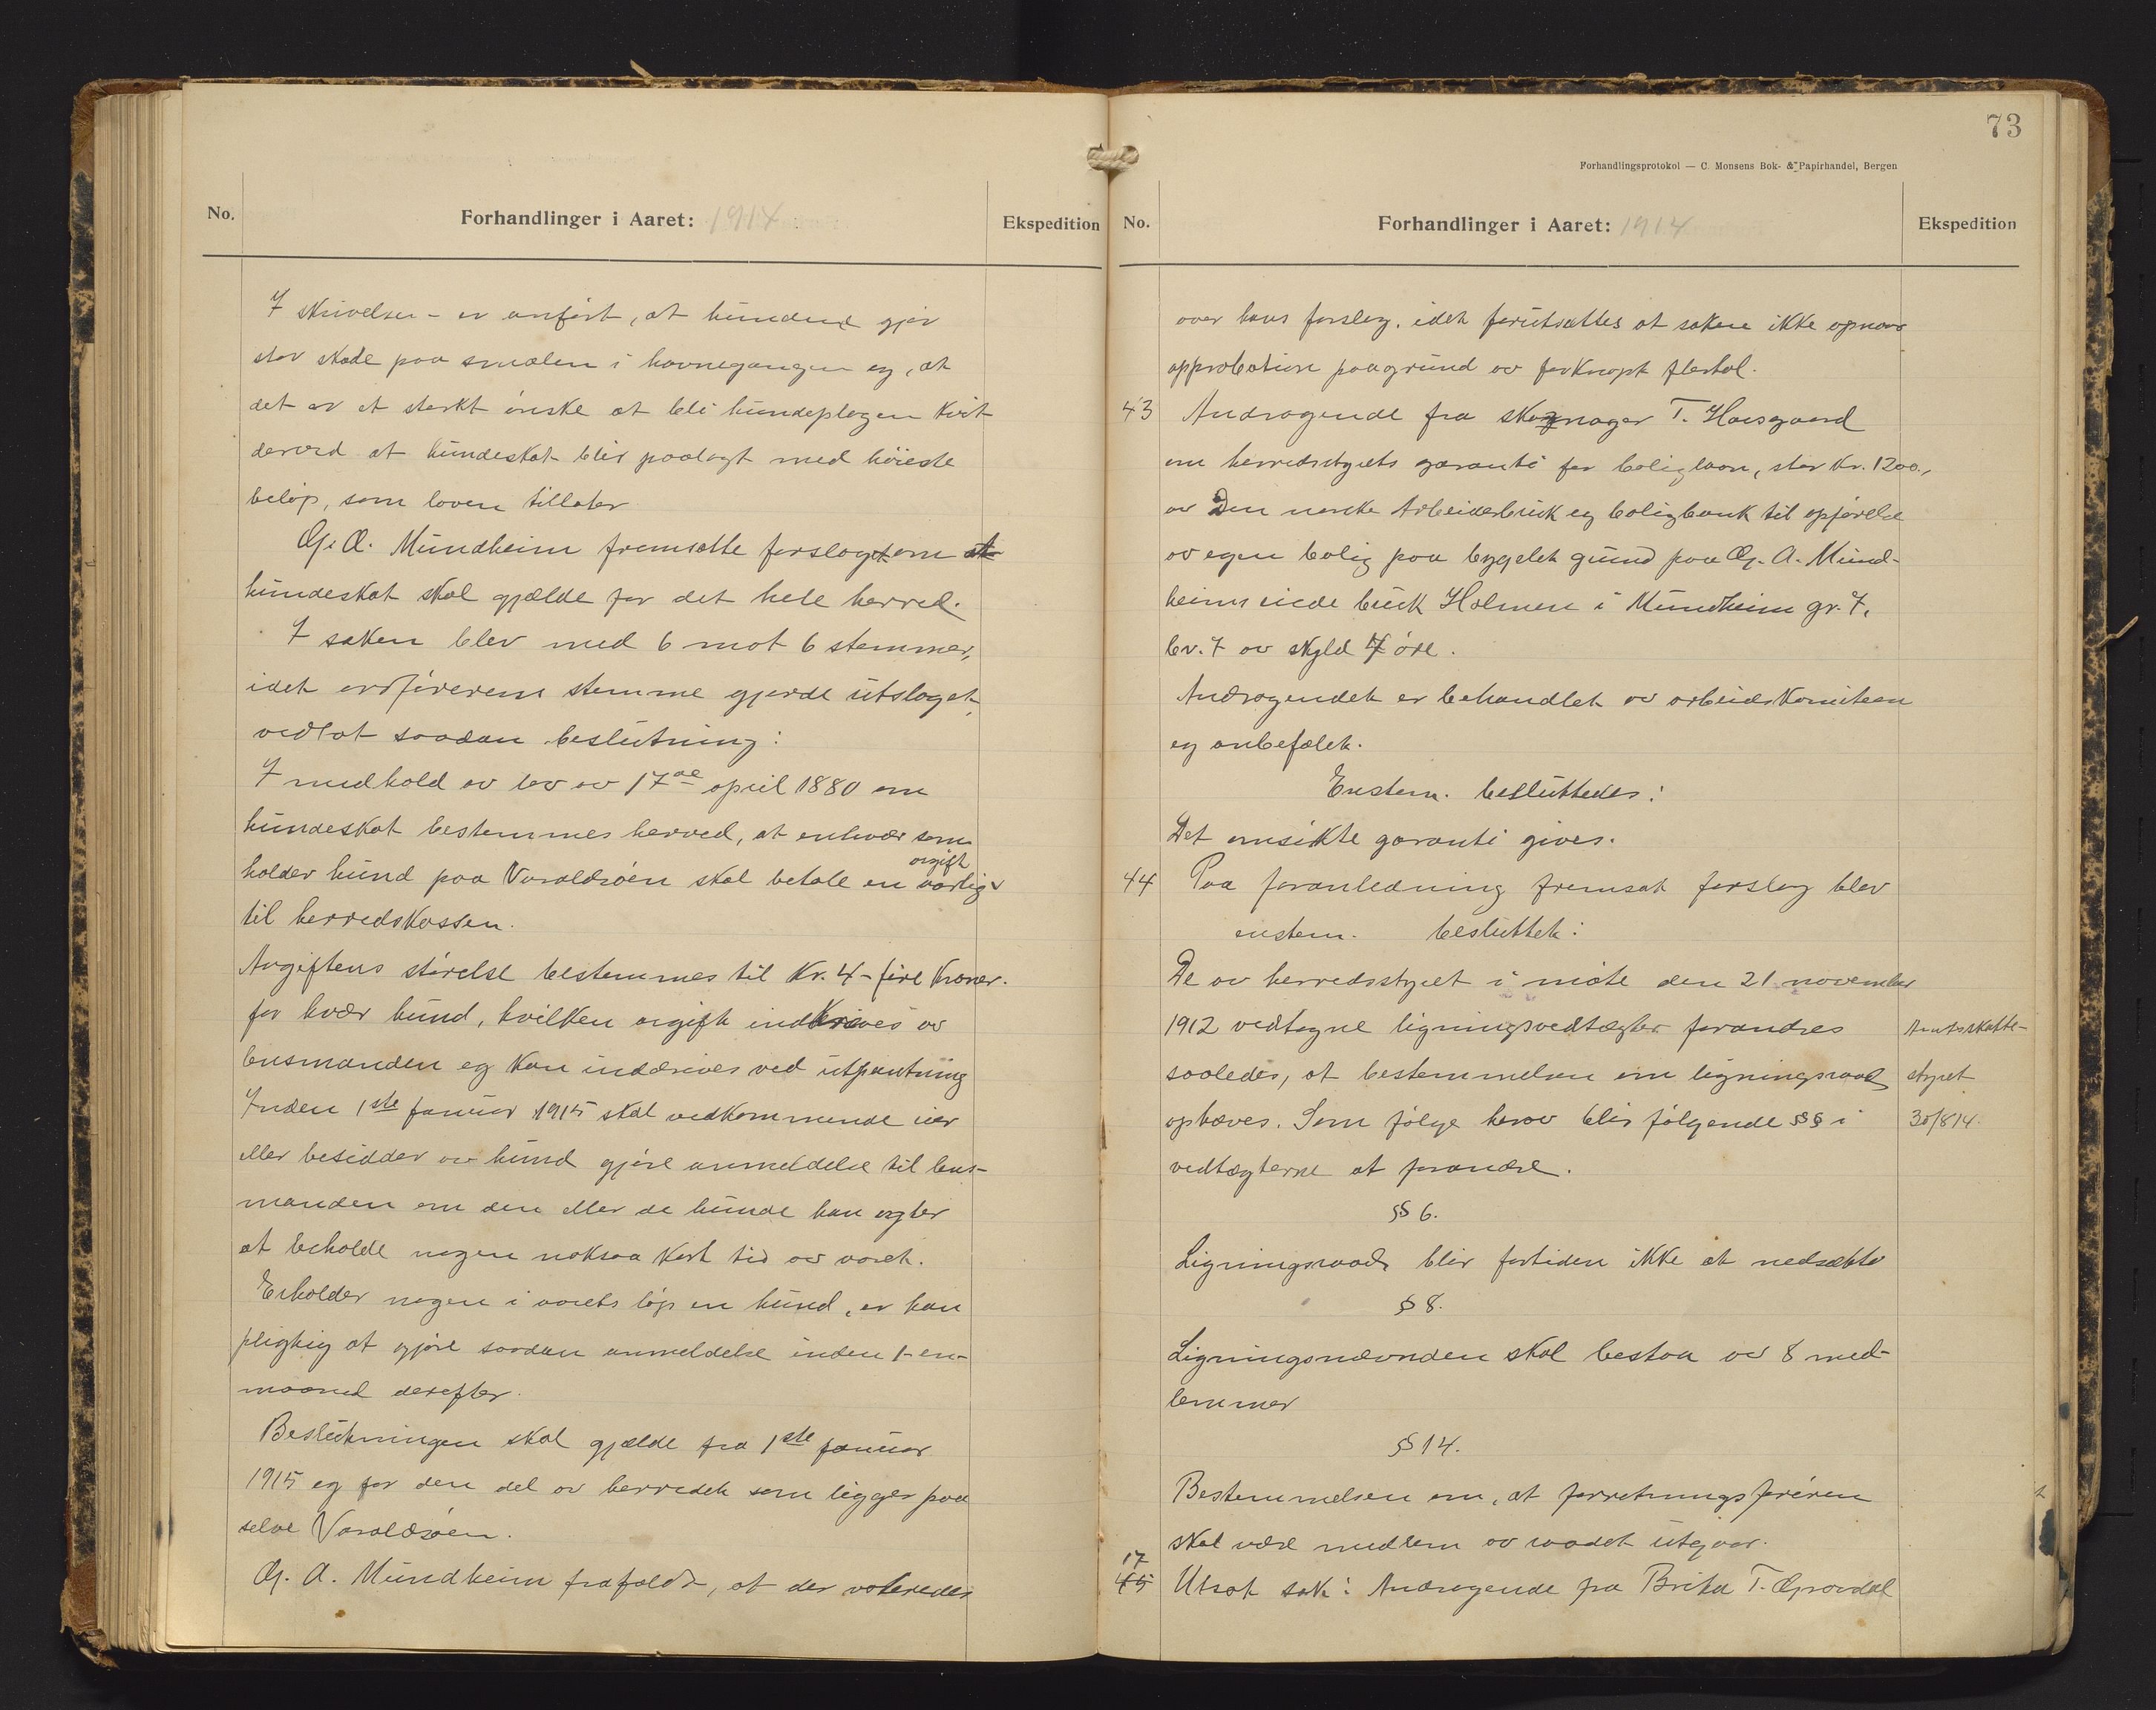 No.
Forhandlinger i Aaret: 1914
Ekspedition
I skrivelsen - er anført, at hundene gjør
stor skade paa smalen i havnegangen og, at
det er et sterkt ønske at bli hundeplagen kvit
derved at hundeskat blir paalagt med høieste
beløp, som loven tillater
G. A. Mundheim fremsatte forslag om at
hundeskat skal gjælde for det hele herred.
I saken blev med 6 mot 6 stemmer,
idet ordførerens stemme gjorde utslaget,
vedtat saadan beslutning:
I medhold av lov av 17de april 1880 om
hundeskat bestemmes herved, at enhver som
avgift
holder hund paa Varaldsøen skal betale en aarlig
til herredskassen.
Avgiftens størelse bestemmes til Kr. 4 - fire kroner.
for hver hund, hvilken avgift indkræves av
lensmanden og kan inddrives ved utpantning
Inden 1ste januar 1915 skal vedkommende eier
eller besidder av hund gjøre anmeldelse til lens-
manden om den eller de hunde han agter
at beholde nogen noksaa kort tid av aaret.
Erholder nogen i aarets løp en hund, er han
pligtig at gjøre saadan anmeldelse inden 1 - en -
maaned derefter.
Beslutningen skal gjælde fra 1ste januar
1915 og for den del av herredet som ligger paa
selve Varaldsøen.
G. A. Mundheim frafaldt, at der voteredes
73
Forhandlingsprotokol — C. Monsens Bok- & Papirhandel, Bergen
No.
Forhandlinger i Aaret: 1914
Ekspedition
over hans forslag, idet forutsættes at saken ikke opnaar
approbation paagrund av forknapt flertal.
43 Andragende fra skomager T. Haasgaard
om herredsstyrets garanti for boliglaan, stor kr. 1200,
av Den norske Arbeiderbruk og boligbank til opførelse
av egen bolig paa bygslet grund paa G. A. Mund-
heims eiede bruk Holmen i Mundheim gr. 7,
br. 7 av skyld 7 øre.
Andragendet er behandlet av arbeidskomiteen
og anbefalet.
Enstem. besluttedes:
Det omsøkte garanti gives.
44 Paa foranledning fremsat forslag blev
enstem. besluttet:
De av herredsstyret i møte den 21 november
1912 vedtagne ligningsvedtægter forandres
saaledes, at bestemmelsen om ligningsraad
ophæves. Som følge herav blir følgende §§ i
vedtægterne at forandre.
Amtsskatte-
styret
30/8 14.
§ 6.
Ligningsraad blir fortiden ikke at nedsætte
§ 8.
Ligningsnævnden skal bestaa av 8 med-
lemmer
§ 14.
Bestemmelsen om, at forretningsføreren
skal være medlem av raadet utgaar.
17
45 Utsat sak: Andragende fra Brita T. Gravdal